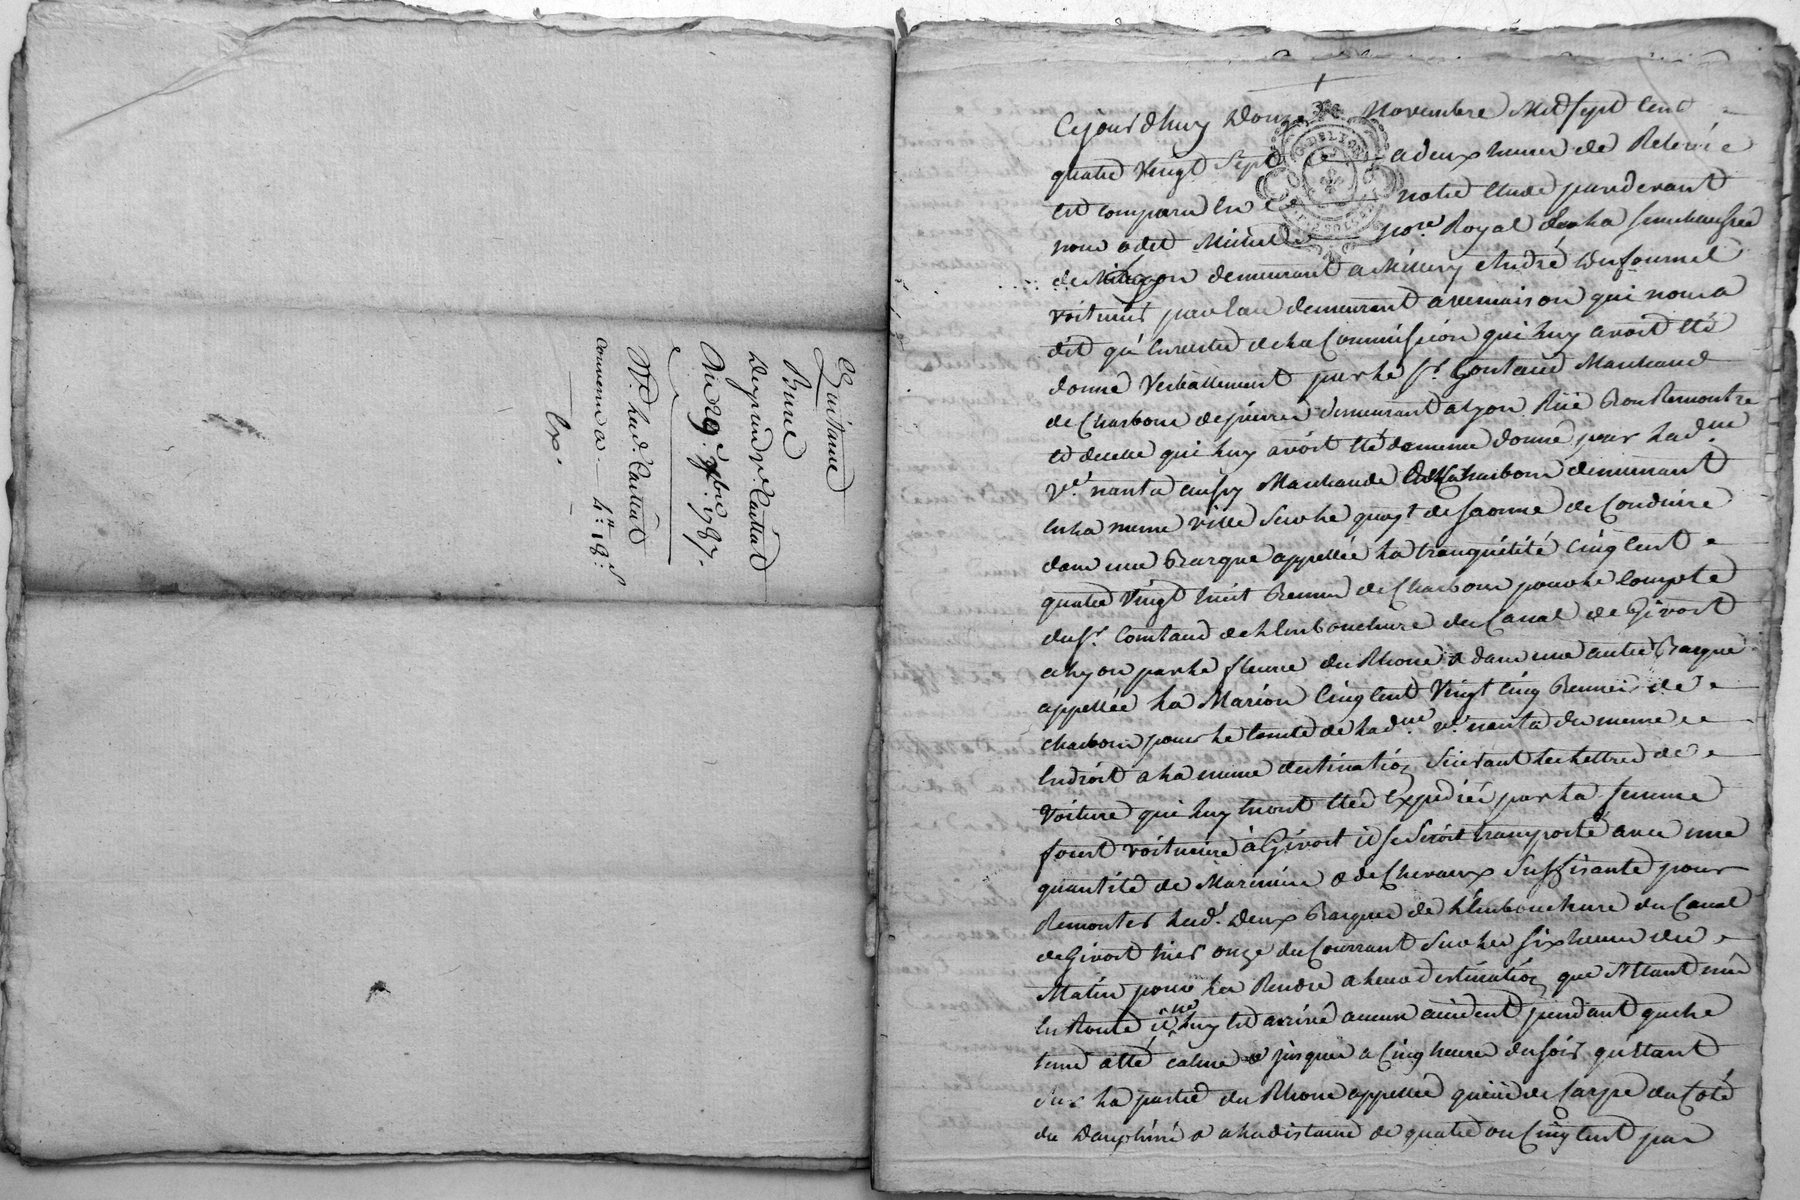 Quitance
Brune
Du 29e 7bre 1787.
convenu a 4lt 18s
Cejourdhuy Douze Novembre Mil sept Cent
quatre Vingt Sept a deux heures de Relevée
Est comparu En notre Etude pardevant
nous adet Michel nore Royal En la senechaussée
de Lyon demeurant a Millery André Dufournel
voiturier par Eau demeurant a vernaison qui nous a
dit qu'En vertu de la Commission qui luy avoit Eté
donné Verballement par le sr Contaud Marchand
de Charbons de pierres demeurant a Lyon Rüe Bourremontre
et de celle qui luy avoit Eté de meme donné par lad. me
ve. nanta aussy Marchande de Charbon demeurant
En la meme ville Sur le quay de saonne de Conduire
dans une Barque appellée La tranquilité Cinq Cent
quatre Vingt huit Bennes de Charbon pour le Compte
du sr. Contaud de L'Embouchure du Canal de Givort
a Lyon par le fleuve du Rhone & dans une autre Barque
appellée La Marion Cinq Cent Vingt Cinq Bennes de
charbon pour le Comte de lad. me ve. nanta du meme
Endroit a la meme destination Suivant les Lettres de
Voiture qui luy En ont Eté Expediées par La femme
voituriere a Givort il se Seroit transporté avec une
quantité de Mariniers & de Chevaux Suffisante pour
Remonter lesd. Deux Barques de L'Embouchure du Canal
de Givort hier onze du Courrant Sur les six heures du
Matin pour les Rendre a leur destination, que S'Etant mis
En Route il ne luy Est arrivé aucun accident pendant que le
tems a Eté calme & jusques a Cinq heures du soir qu'Etant
Sur La partie du Rhone appellée queüe de Carpe du Coté
du Dauphiné & a la distance de quatre ou Cinq Cent pas